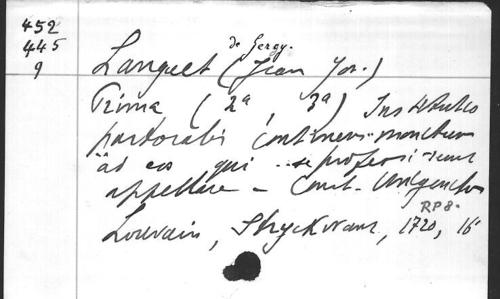 452
445
9
de Gergy.
Languet (Jean Jos.)
Prima (2a 3a) Institutio
pastoralis continens monitum
ad eos qui se professi sunt
appellare – Const. Unigenitus
RP8.
Louvain, Stryckwant, 1720, 16